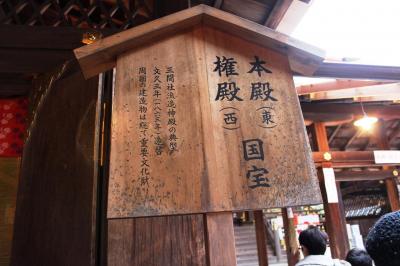 本殿(東)
権殿(西)
国宝
三間社流造神殿の典型
文久三年(一八六三年)造替
周囲の建造物は総て重要文化財